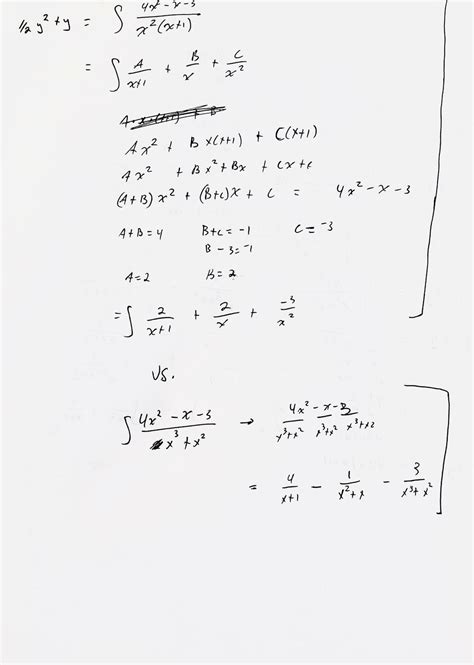 ½ y² + y = ∫ 4x² - x - 3 / x²(x+1)
= ∫ A/x+1 + B/x + C/x²
Ax² + Bx(x+1) + C(x+1)
Ax² + Bx² + Bx + Cx + C
(A+B)x² + (B+C)x + C = 4x² - x - 3
A+B = 4 B+C = -1 C = -3
B - 3 = -1
A = 2 B = 2
= ∫ 2/x+1 + 2/x + -3/x²
VS.
∫ 4x² - x - 3 / x³ + x² → 4x²/x³+x² - x/x³+x² - 3/x³+x2
= 4/x+1 - 1/x²+x - 3/x³+x²